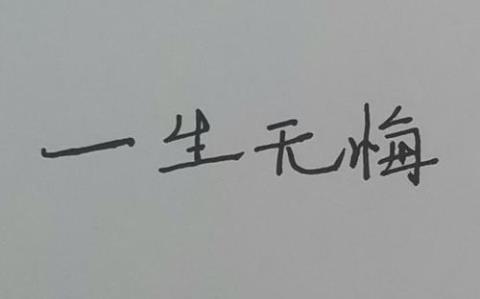 一生无悔